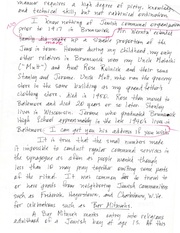 manner requires a high degree of poetry, knowledge,
and technical skill, but not rabbinical ordination.
I know nothing of Jewish communal organization
prior to 1937 in Brunswick. Mr.
family
Jews in town. However during my childhood my only
other relatives in Brunswick were my Uncle Malachi
("Mutt") and Aunt Rose Reinick and their sons
Stanley and Jerome. Uncle Mutt, who ran the grocery
store in the same building as my grand father's
clothing store, died in 1950. Rose then moved to
Baltimore and died 20 years or so later. Stanley
lives in Wisconsin. Jerome who graduated Brunswick
High School approximately in the late 1950's lives in
Baltimore. I can get you his address if you wish.
It is true that the small numbers made
it impossible to conduct regular communal services in
the synagogue as often as people wanted though
less than 10 may pray together omitting some parts
of the ritual. It was common for to travel to
or have guests from neighboring Jewish communities
such as Frederick, Hagerstown, and Charlestown, W.Va.
for celebrations such as Bar Mitzvahs.
A Bar Mitzvah marks entry into religious
adulthood of a Jewish boy at age 13. At this